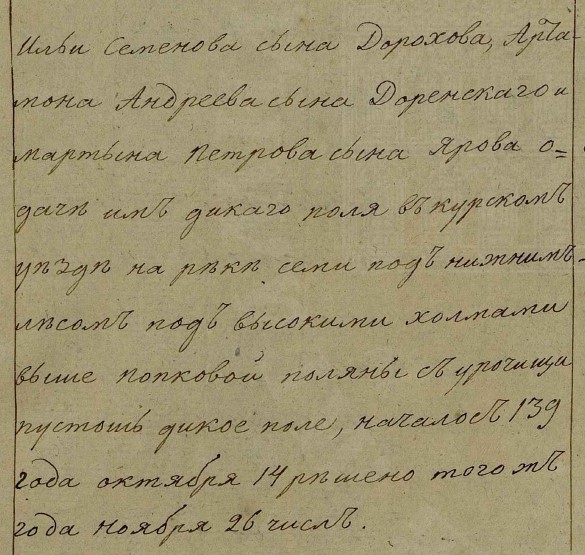 Ильи Семенова сына Дорохова, Арта-
мона Андреева сына Доренскаго и
мартына Петрова сына Ярова о=
дачѣ имъ дикаго поля въ курскомъ
уѣздѣ на рѣкѣ семи подъ нижнимъ
лѣсомъ подъ высокими холмами
выше попковой поляны съ урочищи
пустошь дикое поле, началось 139
года октября 14 рѣшено того жъ
года ноября 26 числѣ.